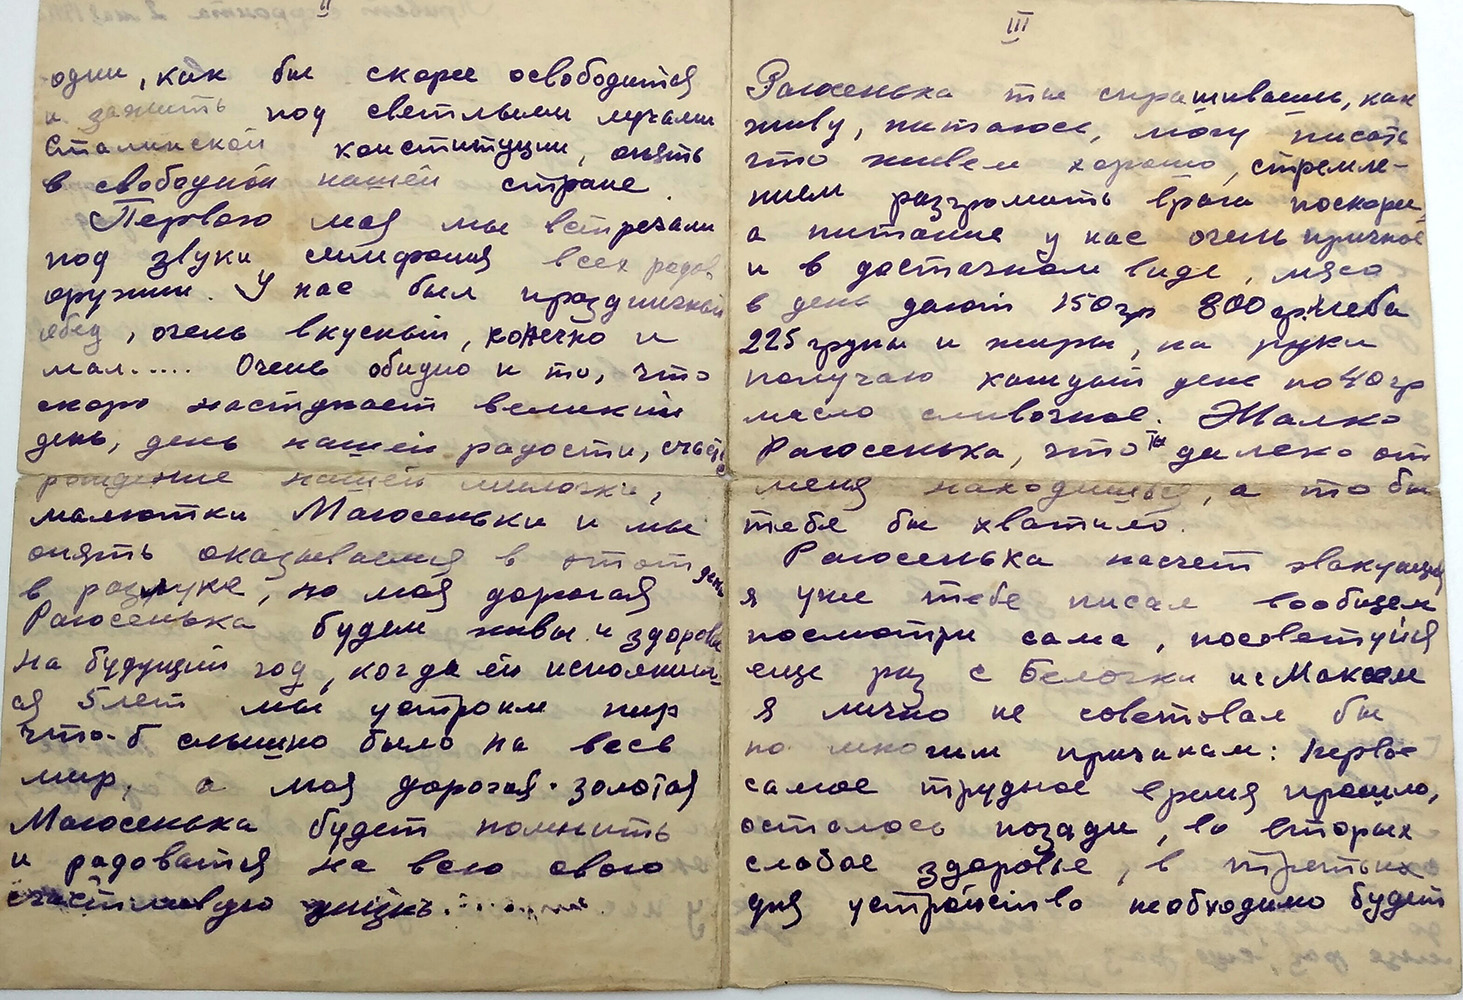 II
одни, как бы скорее освободится
и зажить под светлыми лучами
Сталинской конституции, опять
в свободной нашей стране.
Первого мая мы встречали
под звуки симфония всех родов
оружии. У нас был праздничный
обед, очень вкусный, конечно и
мал..... Очень обидно и то, что
скоро наступает великий
день, день нашей радости, счастье
рождение нашей милочки,
малютки Маюсеньки и мы
опять оказываемся в этот день
в разлуке, но моя дорогая
Раюсенька будем живы и здоровы
на будущий год, когда ей исполнит-
ся 5 лет мы устроим пир
что-б слышно было на весь
мир, а моя дорогая-золотая
Маюсенька будет помнить
и радоватся на всю свою
счастливую жизнь.
III
Раюсенька ты спрашиваешь, как
живу, питаюсь, могу писать
что живем хорошо, стремле-
нием разгромить врага поскорее,
а питание у нас очень приичное
и в достачном виде, мяса
в день дают 150 гр 800 гр. хлеба
225 крупы и жиры, на руки
получаю каждый день по 40 гр
масло сливочное. Жалко
Раюсенька, что ты далеко от
меня находишься, а то бы
тебе бы хватило.
Раюсенька насчет эвакуация
я уже тебе писал вообщем
посмотри сама, посоветуйся
еще раз с Белочки и с Максом
Я лично не советовал бы
по многим причинам: первое
самое трудное время прошло,
осталось позади, во вторых
слабое здоровье, в третьих
для устройство необходимо будет